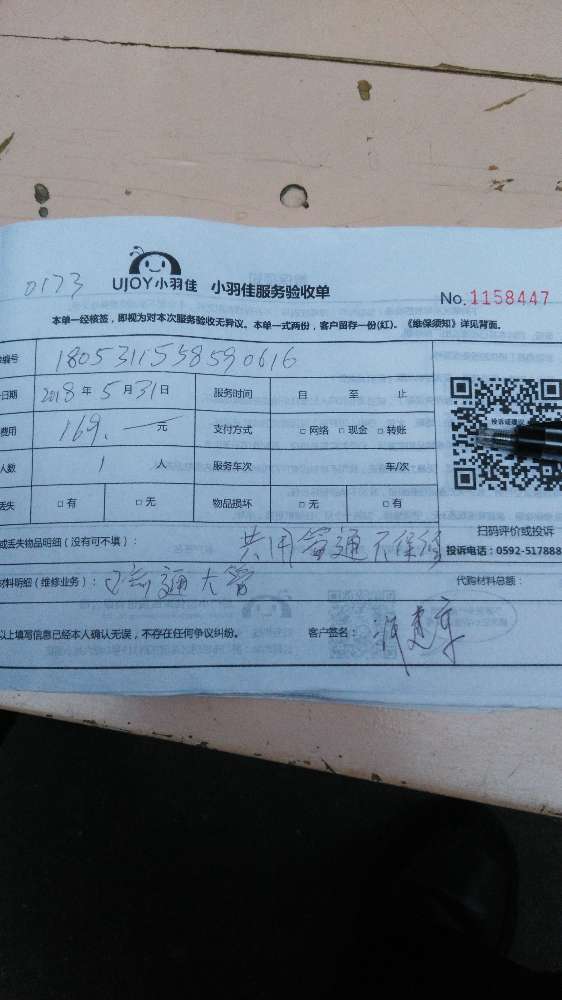 0173
UJOY小羽佳 小羽佳服务验收单
No.1158447
本单一经核签，即视为对本次服务验收无异议。本单一式两份，客户留存一份(红)。《维保须知》详见背面。
编号 1805311558590616
日期 2018年5月31日 服务时间 自 至 止
费用 169.一元 支付方式 □网络 □现金 □转账
人数 1 人 服务车次 车/次
丢失 □有 □无 物品损坏 □无 □有
投诉或建议
扫码评价或投诉
投诉电话：0592-517888
或丢失物品明细（没有可不填）： 共用管通不保修
材料明细（维修业务）： 通大管 代购材料总额：
以上填写信息已经本人确认无误，不存在任何争议纠纷。 客户签名：